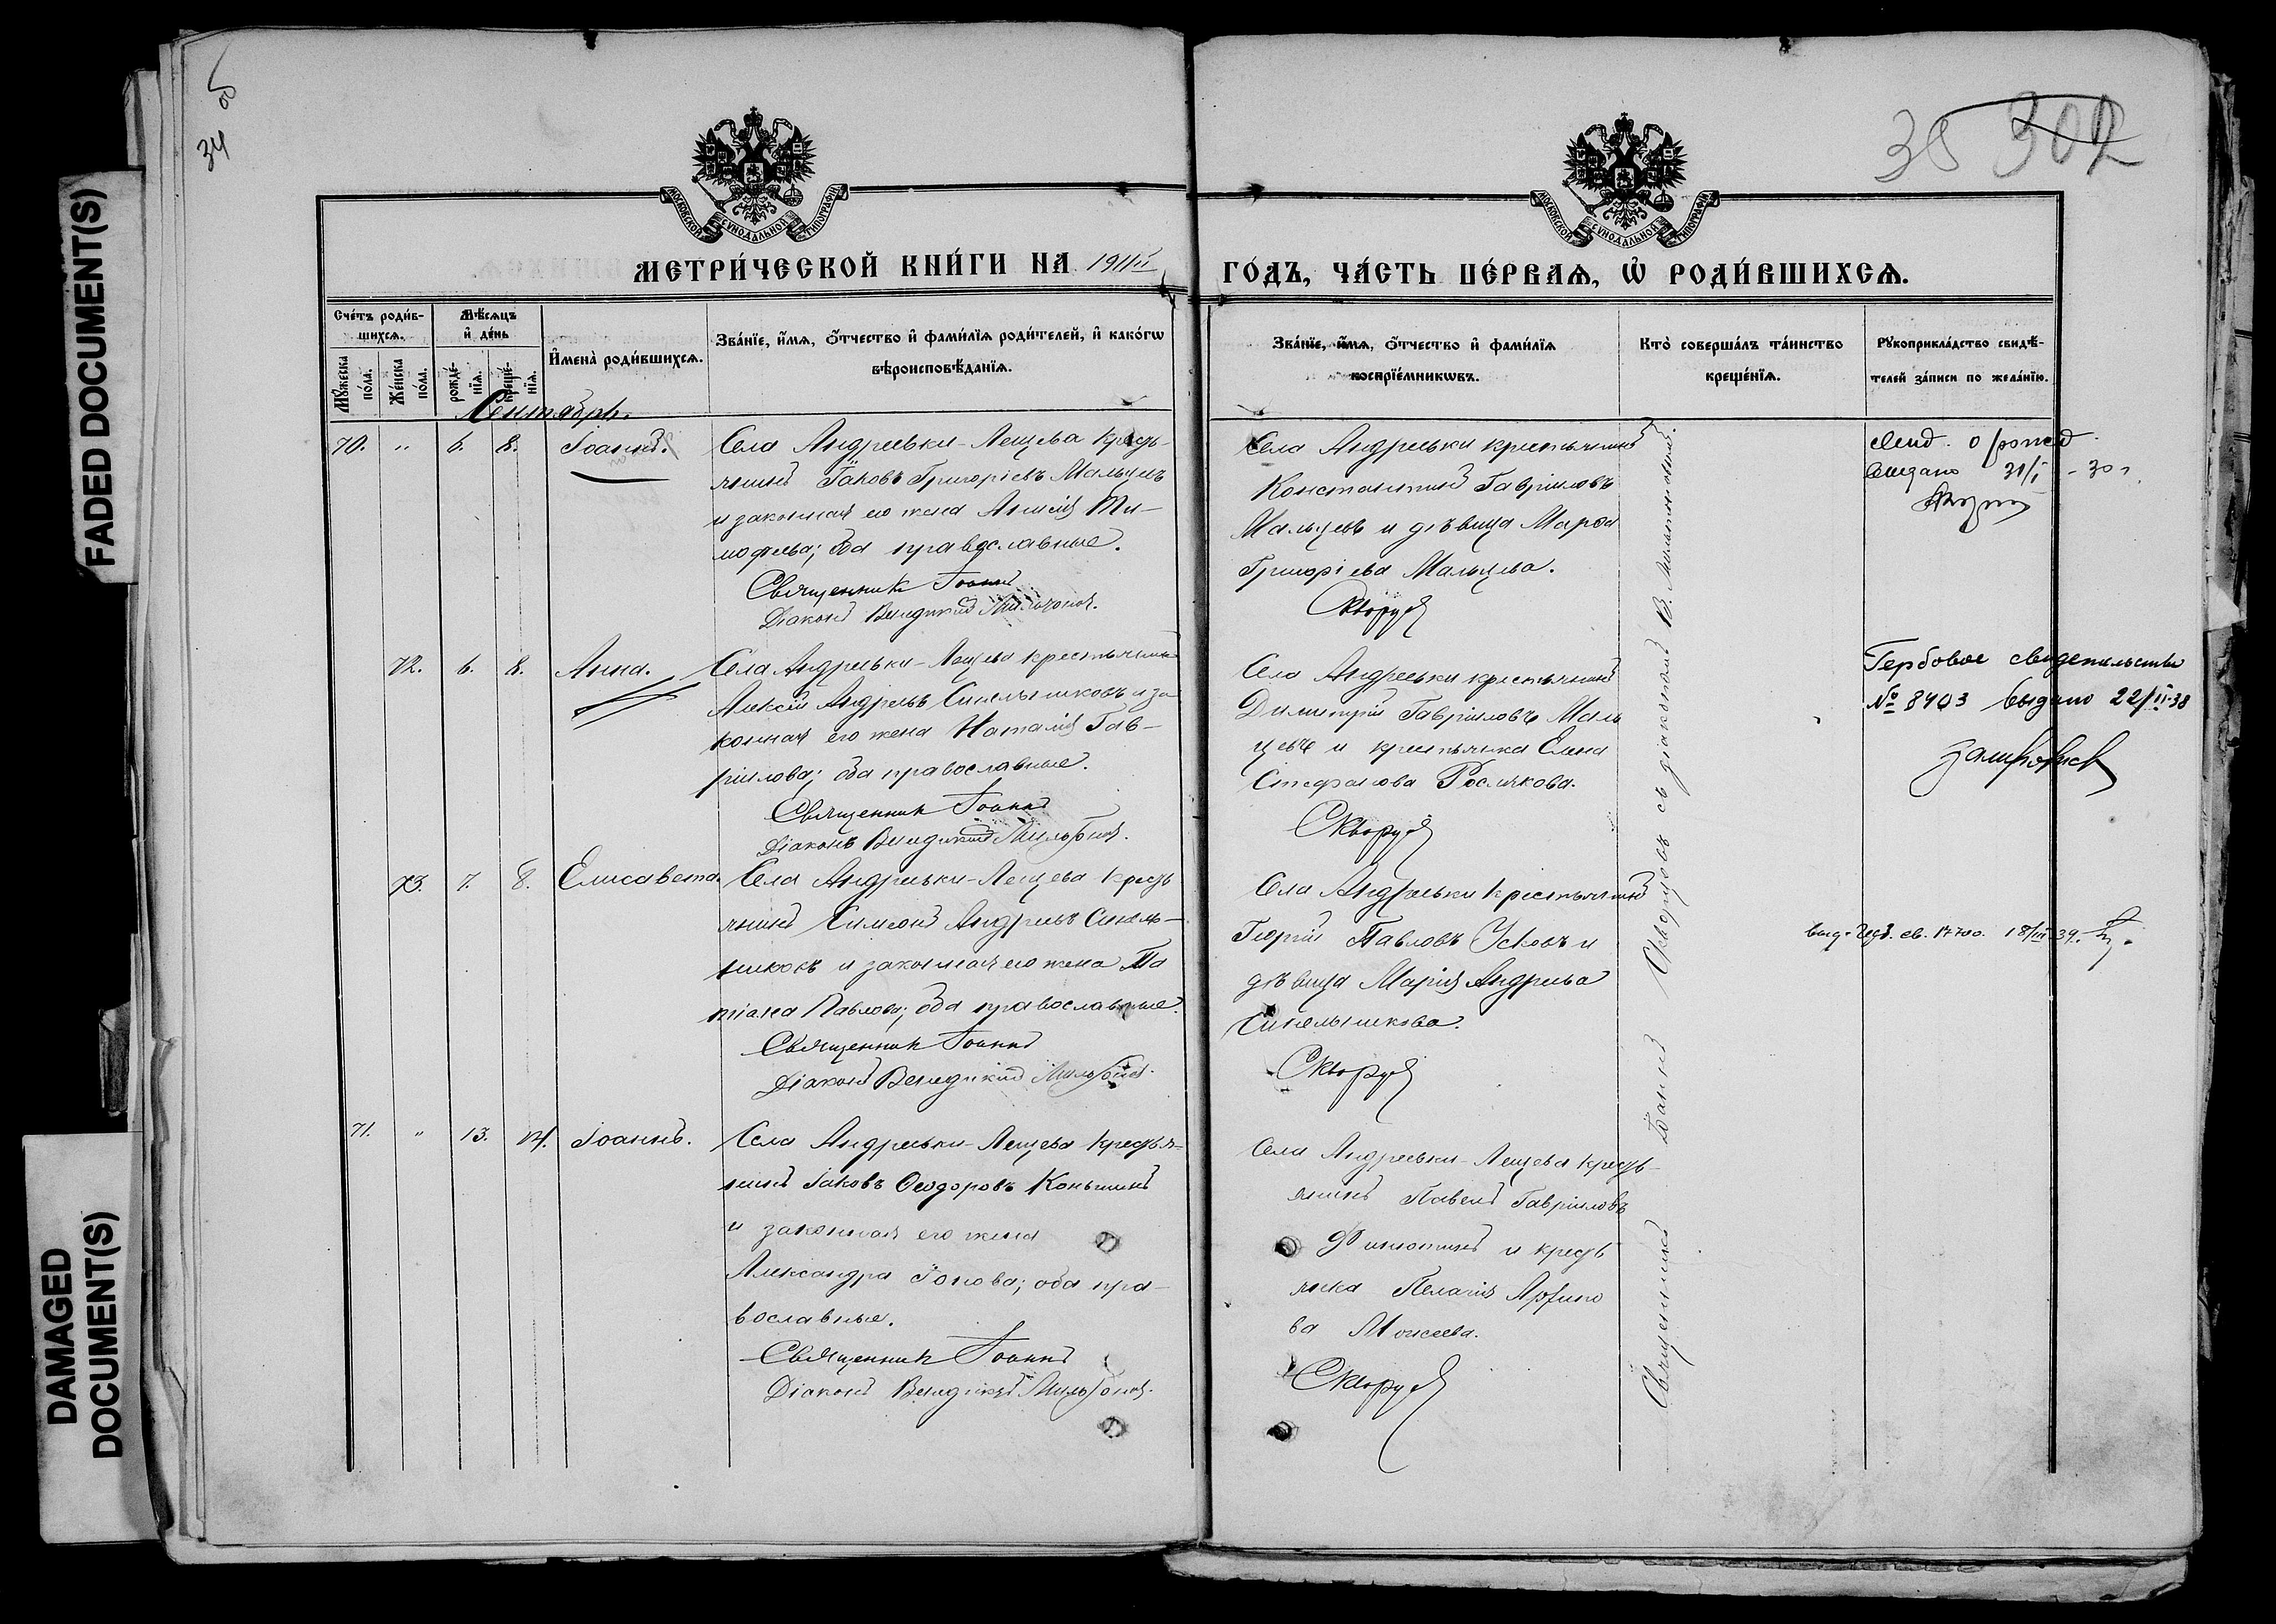 FADED DOCUMENT(S)
DAMAGED
DOCUMENT(S)
34 об
35 302
МОСКОВСКОЙ СѴНОДАЛЬНОЙ ТИПОГРАФІИ
МОСКОВСКОЙ СѴНОДАЛЬНОЙ ТИПОГРАФІИ
МЕТРИ́ЧЕСКОЙ КНИ́ГИ НА 1911й ГО́ДЪ, ЧА́СТЬ ПЕ́РВАѦ, Ѡ҆ РОДИ́ВШИХСѦ.
Сче́тъ роди́в-
шихсѧ.
Мꙋ́жеска
по́ла.
Же́нска
по́ла.
Мѣ́сѧцъ
и҆ де́нь
рожде́-
нїѧ.
креще́-
нїѧ.
И҆мена̀ роди́вшихсѧ.
Зва́нїе, и҆́мѧ, ѻ҆́тчество и҆ фами́лїѧ роди́телей, и҆ како́гѡ
вѣроисповѣ́данїѧ.
Зва́нїе, и҆́мѧ, ѻ҆́тчество и҆ фами́лїѧ
воспрїе́мникѡвъ.
Кто̀ соверша́лъ та́инство
креще́нїѧ.
Рꙋкоприкла́дство свидѣ́-
телей за́писи по жела́нїю.
Сентябрь.
70. " 6. 8. Іоаннъ.
Села Андреевки-Лещева кресть-
янинъ Іаковъ Григоріевъ Мальцевъ
и законная его жена Анисія Ти-
мофеева; оба православные.
Священникъ Іоаннъ
Діаконъ Венедиктъ
Села Андреевки крестьянинъ
Константинъ Гавріиловъ
Мальцевъ и дѣвица Марѳа
Григоріева Мальцева.
Скворцовъ
Свид. о рожд.
выдано 31/I - 30 г.
72. 6. 8. Анна.
Села Андреевки-Лещева крестьянинъ
Алексій Андреевъ Синельниковъ и за-
конная его жена Наталія Гав-
ріилова; оба православные.
Священникъ Іоаннъ
Діаконъ Венедиктъ
Села Андреевки крестьянинъ
Димитрій Гавріиловъ Маль
цевъ и крестьянка Елена
Стефанова Рослякова.
Скворцовъ
Гербовое свидетельство
№ 8403 выдано 22/II-38
73. 7. 8. Елисавета.
Села Андреевки-Лещева кресть
янинъ Симеонъ Андреевъ Синель-
никовъ и законная его жена Та
тіана Павлова; оба православные.
Священникъ Іоаннъ
Діаконъ Венедиктъ
Села Андреевки крестьянинъ
Георгій Павловъ Усковъ и
дѣвица Марія Андреева
Синельникова.
Скворцовъ
выд. св. 17700. 18/III 39.
71. " 13. 14. Іоаннъ.
Села Андреевки-Лещева крестья-
нинъ Іаковъ Ѳеодоровъ Коньшинъ
и законная его жена
Александра Іонова; оба пра-
вославные.
Священникъ Іоаннъ
Діаконъ Венедиктъ
Села Андреевки-Лещева кресть-
янинъ Павелъ Гавріиловъ
и кресть
янка Пелагія
ва Моисеева.
Скворцовъ
Священникъ Іоаннъ Скворцовъ съ діакономъ В.